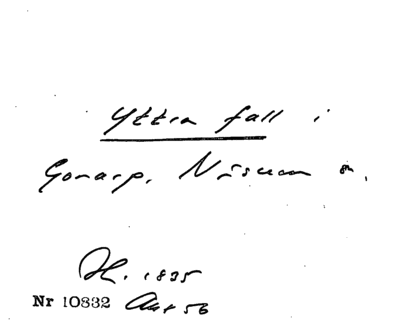 Yttra fall i
Gonarp, Näsum sn.
H. 1835
Nr 10832 Akt 56